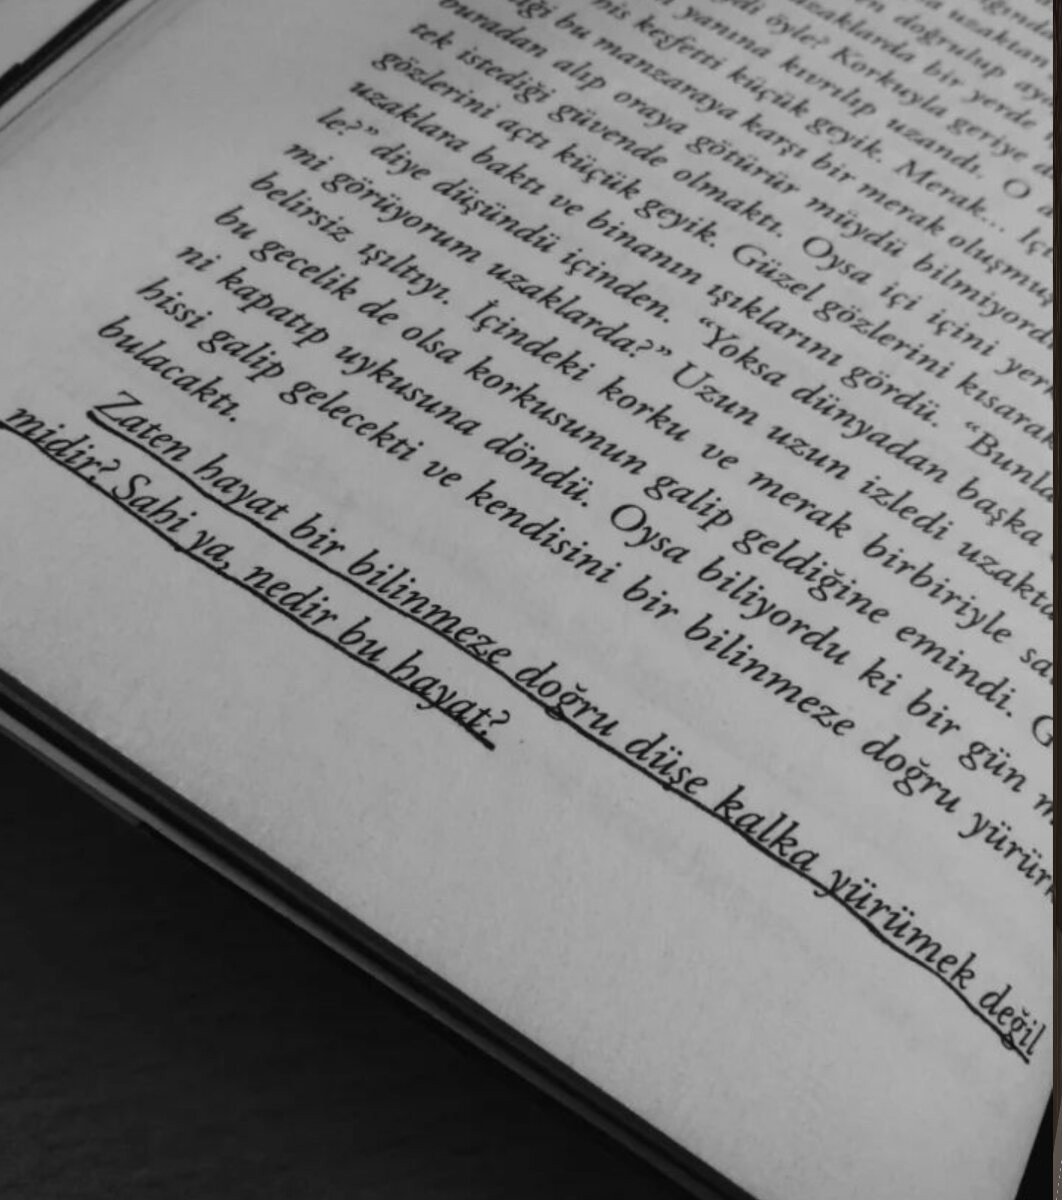 uzaktan
doğrulup
uzaklarda bir yerde
öyle? Korkuyla geriye
yanına kıvrılıp uzandı. O
his keşfetti küçük geyik. Merak...
bu manzaraya karşı bir merak
buradan alıp oraya götürür müydü
tek istediği güvende olmaktı. Oysa içi içini
gözlerini açtı küçük geyik. Güzel gözlerini kısarak
uzaklara baktı ve binanın ışıklarını gördü. “Bunla
le?” diye düşündü içinden. “Yoksa dünyadan başka
mi görüyorum uzaklarda?” Uzun uzun izledi
belirsiz ışıltıyı. İçindeki korku ve merak birbiriyle
bu gecelik de olsa korkusunun galip geldiğine emindi. G
ni kapatıp uykusuna döndü. Oysa biliyordu ki bir gün
hissi galip gelecekti ve kendisini bir bilinmeze doğru
bulacaktı.
Zaten hayat bir bilinmeze doğru düşe kalka yürümek değil
midir? Sahi ya, nedir bu hayat?